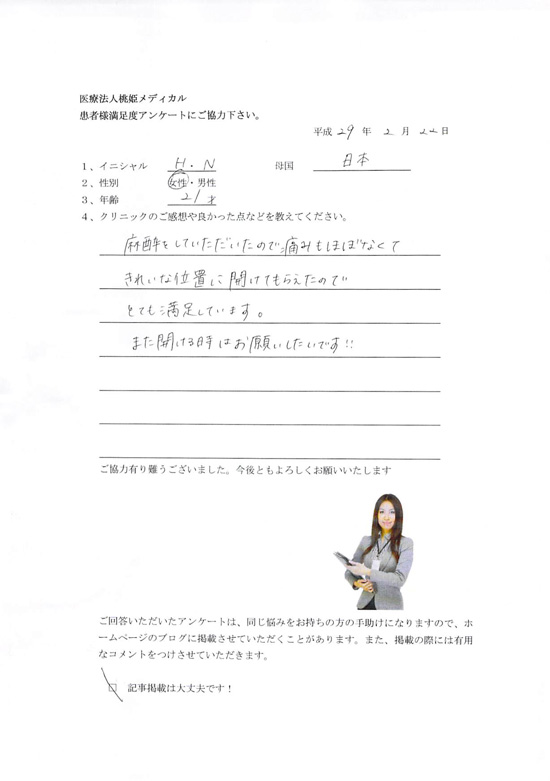 医療法人桃姫メディカル
患者様満足度アンケートにご協力下さい。
平成 29 年 2 月 22 日
1、イニシャル H.N 母国 日本
2、性別 女性・男性
3、年齢 21才
4、クリニックのご感想や良かった点などを教えてください。
麻酔をしていただいたので痛みもほぼなくて
きれいな位置に開けてもらえたので
とても満足しています。
また開ける時はお願いしたいです!!
ご協力有り難うございました。今後ともよろしくお願いいたします
ご回答いただいたアンケートは、同じ悩みをお持ちの方の手助けになりますので、ホ
ームページのブログに掲載させていただくことがあります。また、掲載の際には有用
なコメントをつけさせていただきます。
□ 記事掲載は大丈夫です!